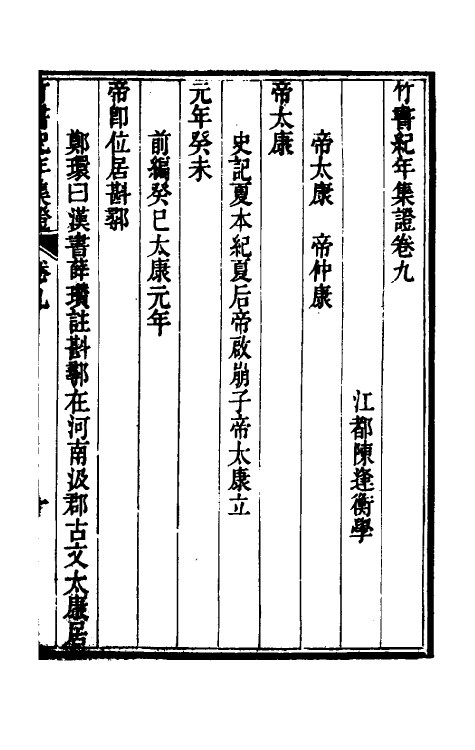 竹書紀年集證卷九
江都陳逢衡學
帝太康　帝仲康
帝太康
史記夏本紀夏后帝啟崩子帝太康立
元年癸未
前編癸巳太康元年
帝卽位居斟鄩
鄭環曰漢書薛瓚註斟鄩在河南汲郡古文太康居
竹書紀年集證　卷九